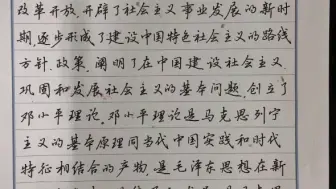 改革开放,开辟了社会主义事业发展的新时
期,逐步形成了建设中国特色社会主义的路线
方针、政策,阐明了在中国建设社会主义、
巩固和发展社会主义的基本问题,创立了
邓小平理论。邓小平理论是马克思列宁
主义的基本原理同当代中国实践和时代
特征相结合的产物,是毛泽东思想在新